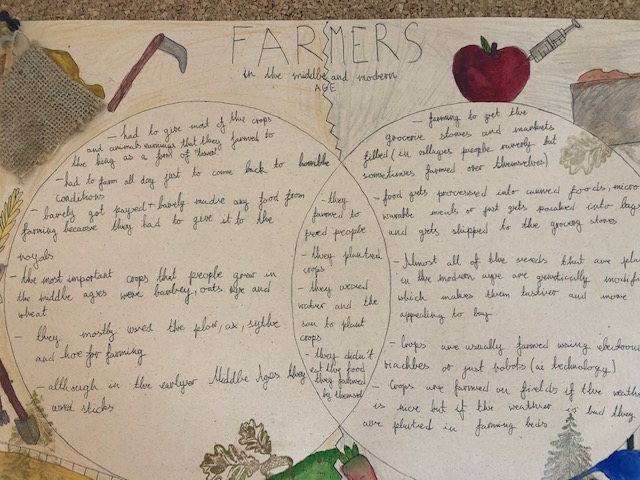 FARMERS
in the middle and modern
AGE
- had to give most of the crops
and animals earnings that they farmed to
the king as a form of "taxes"
- had to farm all day just to come back to horrible
conditions
- barely got payed + barely made any food from
farming because they had to give it to the
royals
- the most important crops that people grew in
the middle ages were barley, oats rye and
wheat
- they mostly used the plow, ax, sythe
and hoe for farming
- although in the earlyer Middle Ages they
used sticks
- they
farmed to
feed people
- they planted
crops
- they used
water and the
sun to plant
crops
- they didn't
eat the food
they farmed
by themsel
- farming to get the
grocerie stores and markets
filled (in villages people but
sometimes farmed over themselves)
- food gets processed into canned foods, micro
wavable meals or just gets pacaked into bags
and gets shipped to the grocery stores
- Almost all of the seeds that are pla
in the modern age are genetically modifi
which makes them tastier and more
appealing to buy
- Crops are usually farmed using electroni
machines or just robots (ai technology)
- Crops are farmed on fields if the weath
is nice but if the weather is bad they
are planted in farming beds